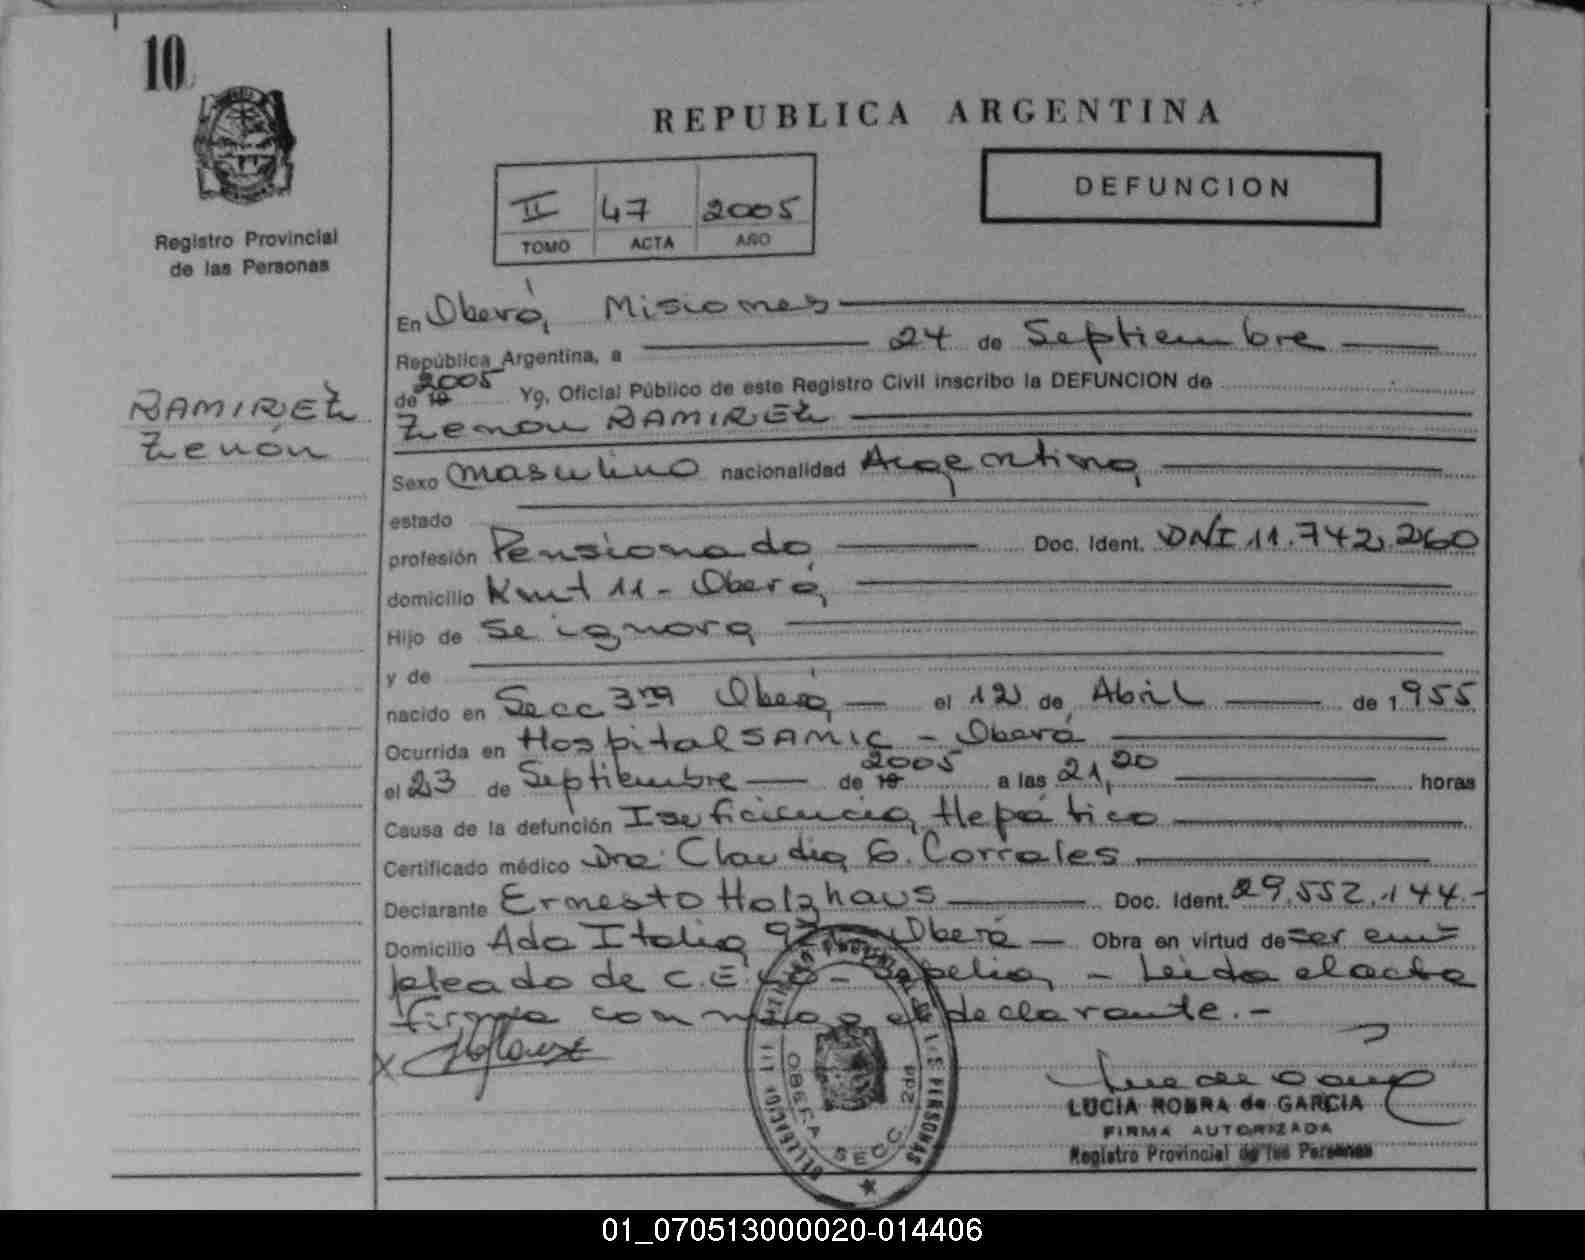 10
REPUBLICA ARGENTINA
DEFUNCION
II 47 2005
TOMO ACTA AÑO
Registro Provincial
de las Personas
RAMIREZ
Zenón
En Oberá, Misiones
República Argentina, a 24 de Septiembre
de 19 2005 Yo, Oficial Público de este Registro Civil inscribo la DEFUNCION de
Zenon RAMIREZ
Sexo masculino nacionalidad Argentina
estado
profesión Pensionado Doc. Ident. DNI 11.742.260
domicilio Kmt 11 - Oberá
Hijo de se ignora
y de
nacido en Secc 3ra Oberá el 12 de Abril de 1955
Ocurrida en Hospital SAMIC - Oberá
el 23 de Septiembre de 19 2005 a las 21,20 horas
Causa de la defunción Isuficiencia Hepático
Certificado médico Dra: Claudia G. Corrales
Declarante Ernesto Holzhaus Doc. Ident. 29.552.144.-
Domicilio Avda Italia Oberá Obra en virtud de ser em=
pleado de sepelio - Leida el acta
firma conmigo el declarante.-
LUCIA ROBRA de GARCIA
FIRMA AUTORIZADA
Registro Provincial de las Personas
DELEGACION
OBERA SECC. 2da
01_070513000020-014406